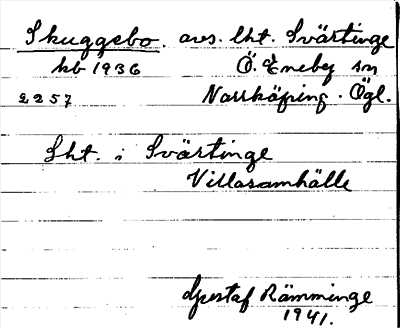 Skuggebo. avs. lht. Svärtinge
kb 1936 Ö. Eneby sn
2257 Norrköping. Ögl.
Lht. i Svärtinge
Villasamhälle
Gustaf Rämminge
1941.